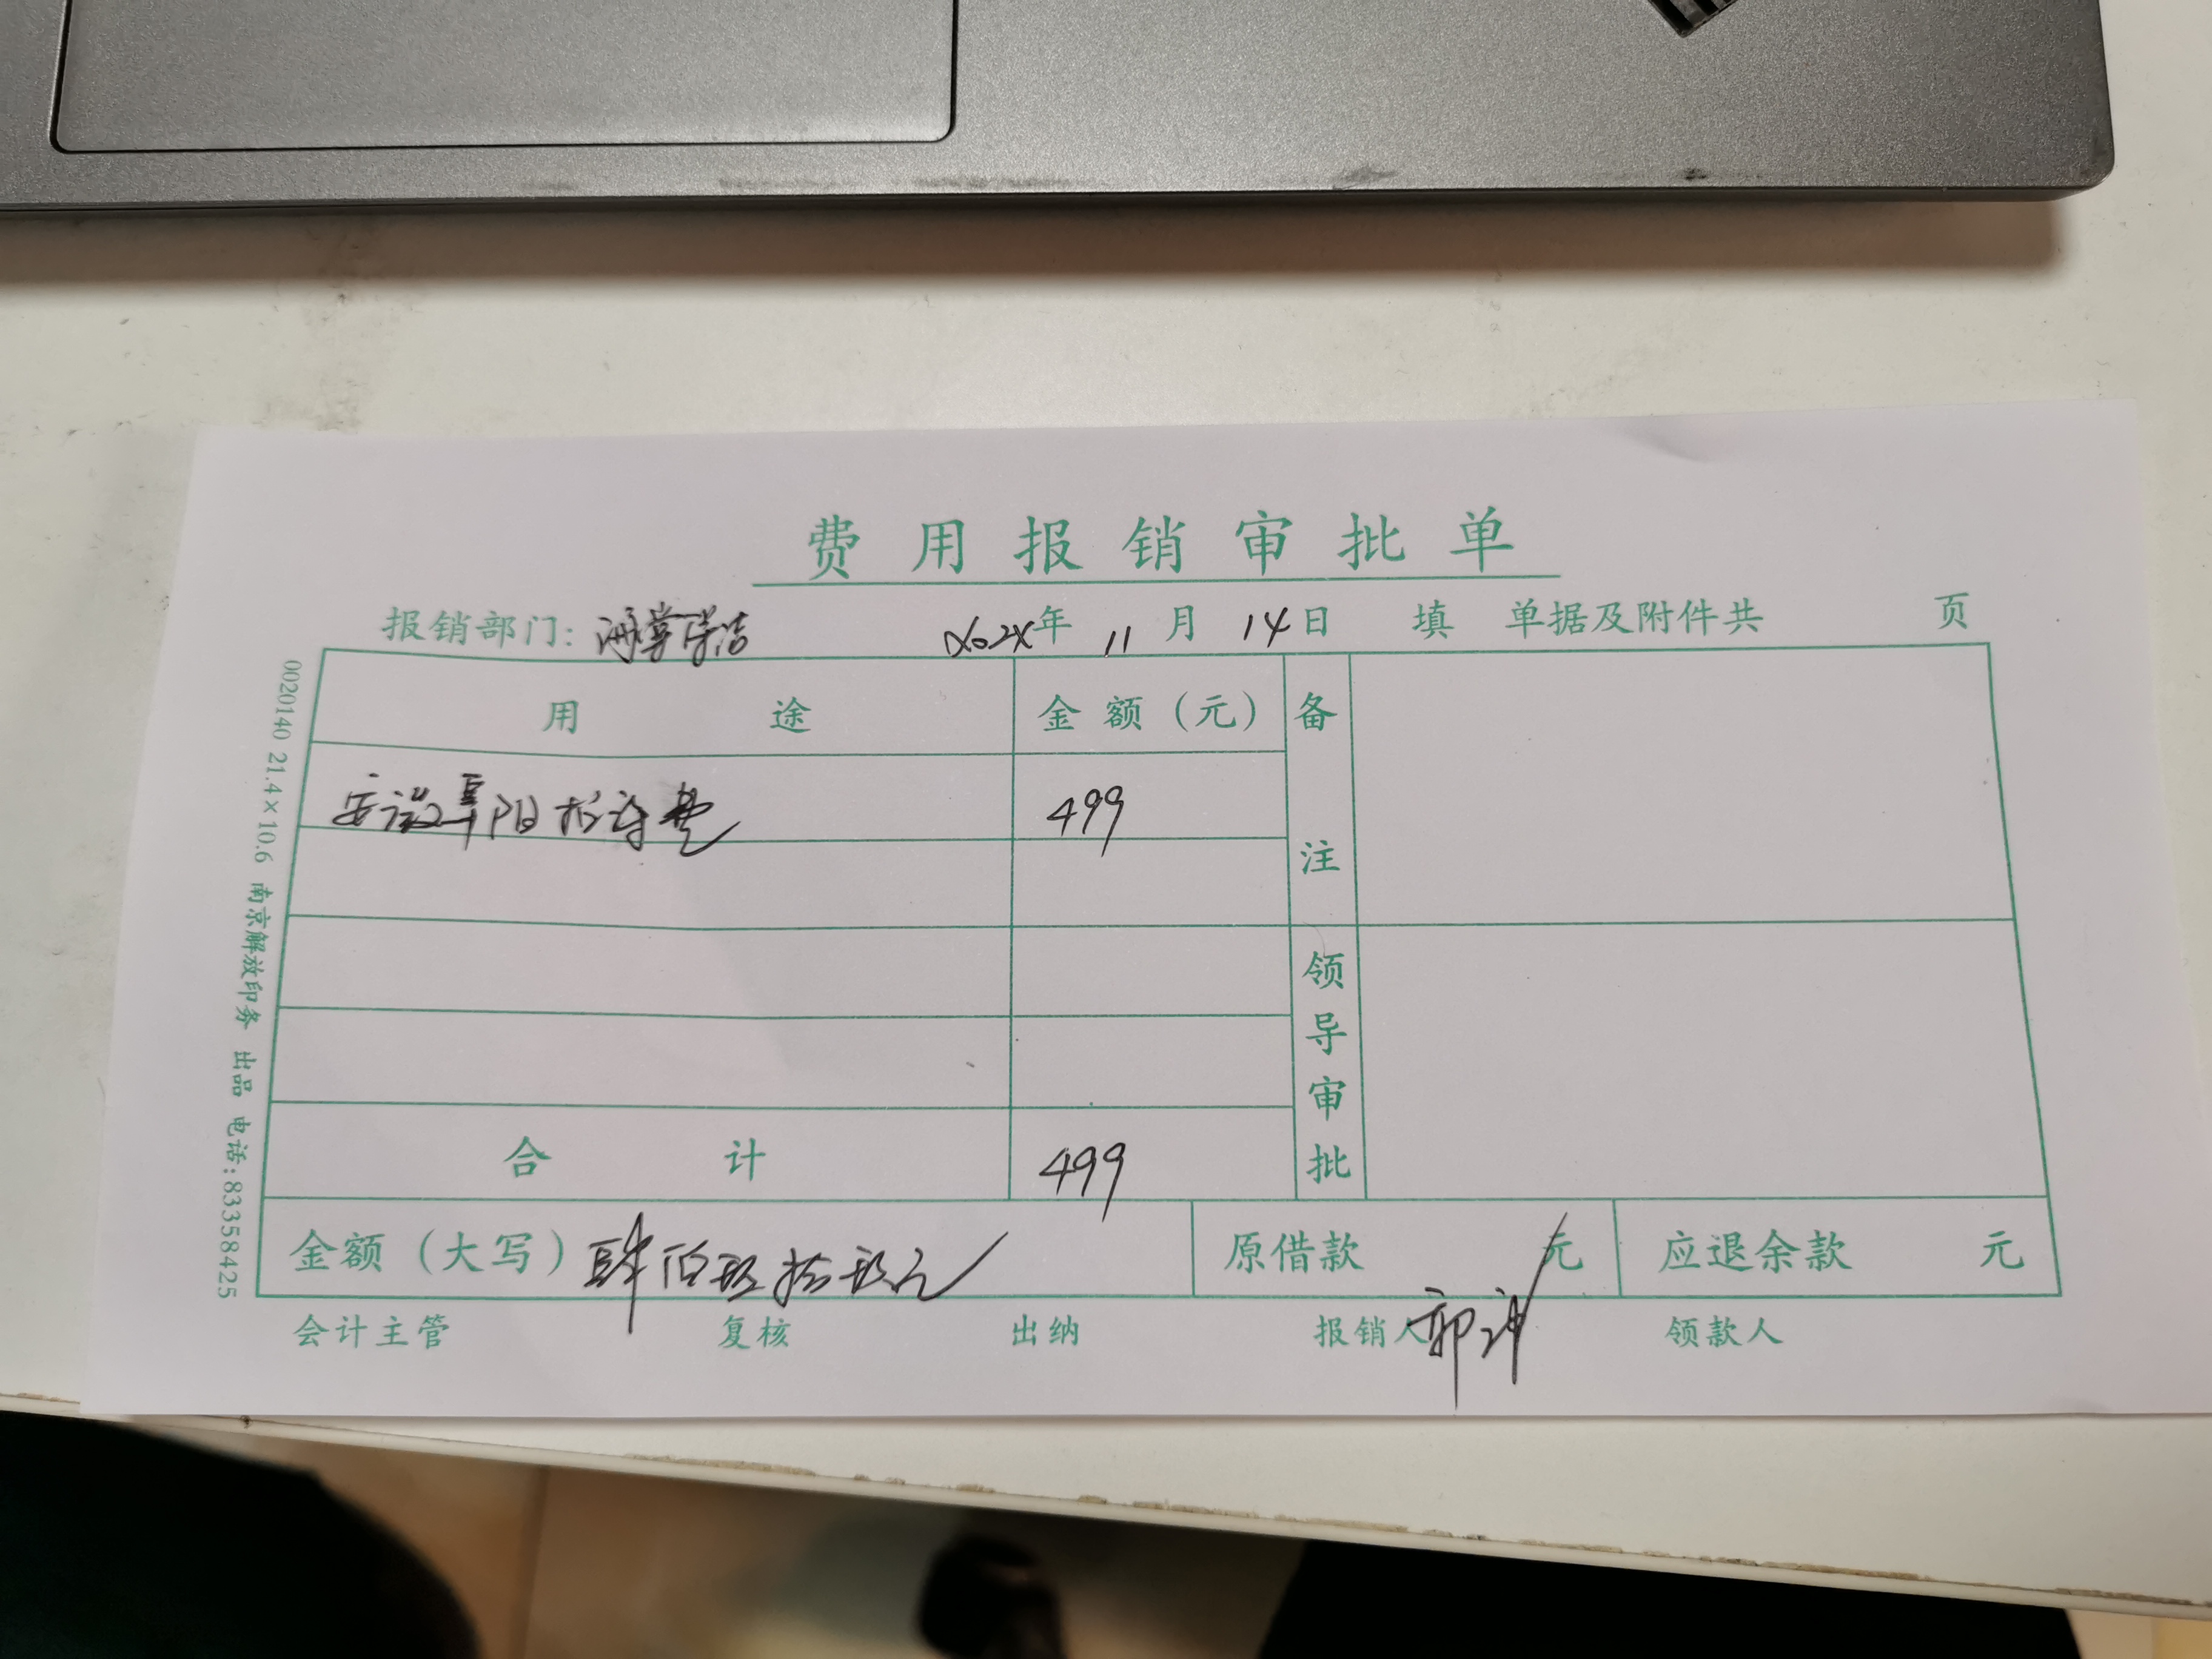 费用报销审批单
报销部门： 年 11 月 14 日 填 单据及附件共 页
用途 金额（元） 备注
安徽阜阳 费 499
合计 499
领导审批
金额（大写）肆佰 拾 元 原借款 元 应退余款 元
会计主管 复核 出纳 报销人 领款人
0020140 21.4×10.6 南京解放印务 出品 电话：83358425